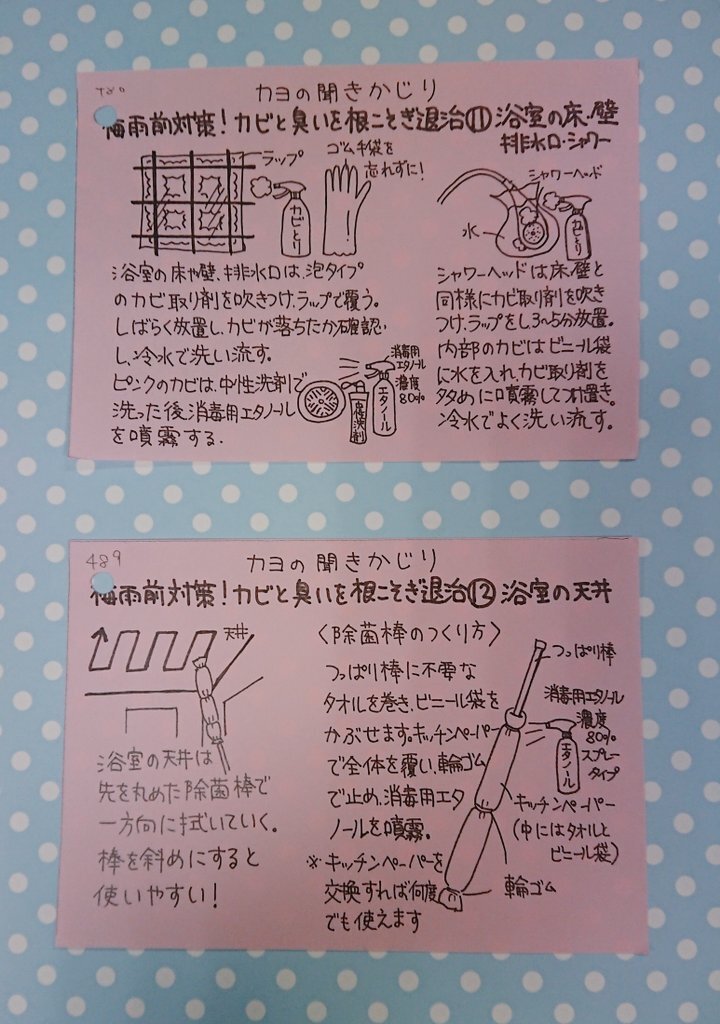 カヨの聞きかじり
梅雨前対策！カビと臭いを根こそぎ退治⑪浴室の床・壁
排水口・シャワー
ラップ
ゴム手袋を
忘れずに！
カビとり
シャワーヘッド
水
カビとり
浴室の床や壁、排水口は、泡タイプ
のカビ取り剤を吹きつけ、ラップで覆う。
しばらく放置し、カビが落ちたか確認
し、冷水で洗い流す。
ピンクのカビは、中性洗剤で
洗った後、消毒用エタノール
を噴霧する.
消毒用
エタノール
濃度
80%
中性洗剤
エタノール
シャワーヘッドは床、壁と
同様にカビ取り剤を吹き
つけ、ラップをし3~5分放置。
内部のカビはビニール袋
に水を入れ、カビ取り剤を
多めに噴霧してつけ置き。
冷水でよく洗い流す。
489
カヨの聞きかじり
梅雨前対策！カビと臭いを根こそぎ退治⑫浴室の天井
天井
浴室の天井は
先を丸めた除菌棒で
一方向に拭いていく。
棒を斜めにすると
使いやすい！
〈除菌棒のつくり方〉
つっぱり棒に不要な
タオルを巻き、ビニール袋を
かぶせます。キッチンペーパー
で全体を覆い、輪ゴム
で止め、消毒用エタ
ノールを噴霧。
※キッチンペーパーを
交換すれば何度
でも使えます
つっぱり棒
消毒用エタノール
濃度
80%
スプレー
タイプ
エタノール
キッチンペーパー
(中にはタオルと
ビニール袋)
輪ゴム